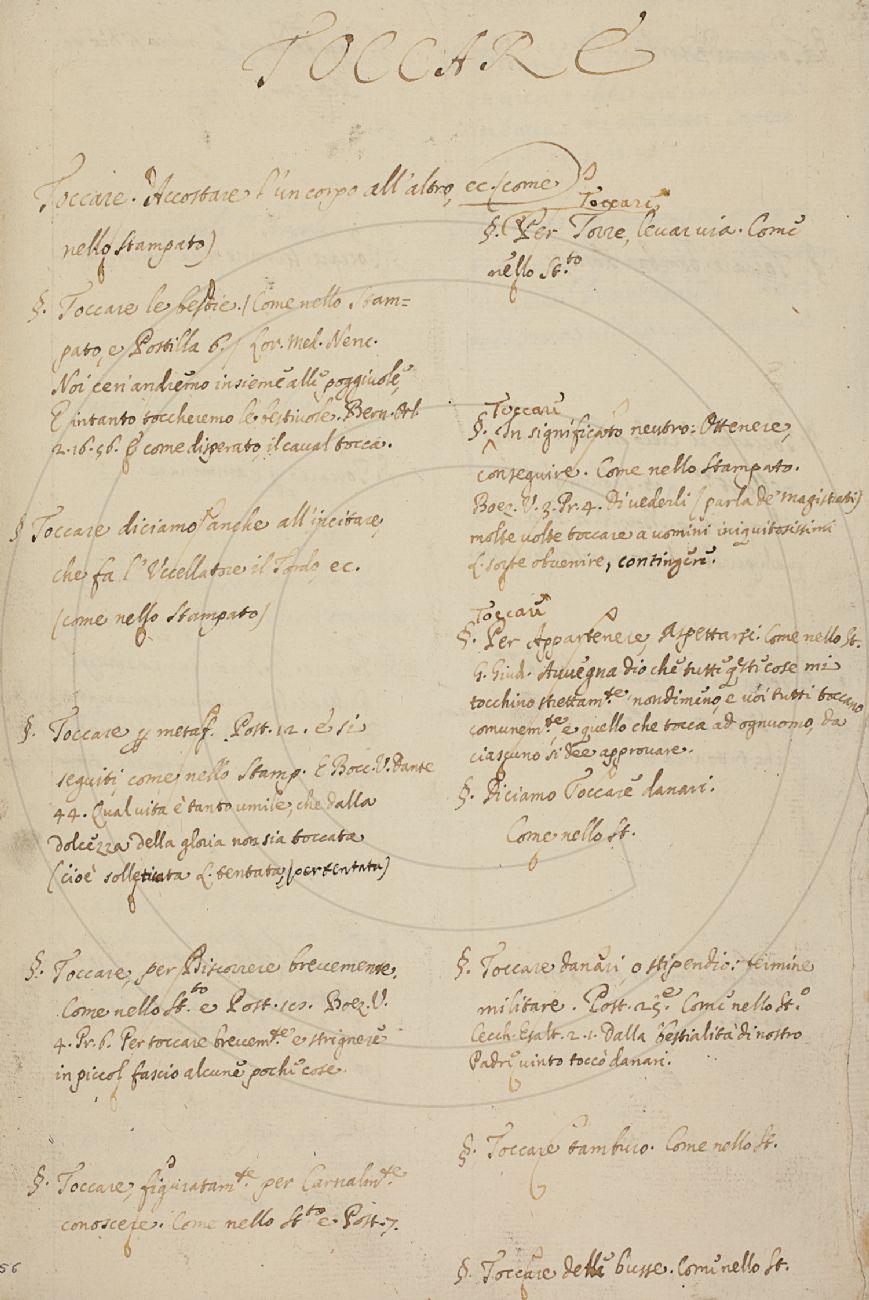 TOCCARE
Toccare. Accostare l'un corpo all'altro, ec. (come
nello Stampato)
§. Toccare le bestie. (Come nello Stam=
pato, e Postilla 6.) Lor. Med. Nenc.
Noi ce n'andremo insieme alle poggiuole,
E intanto toccheremo le bestiuole. Bern. Orl.
2. 16. 56. E come disperato il caval tocca.
§ Toccare diciamo anche all'incitare,
che fa l'Uccellatore il Tordo, ec.
(come nello Stampato)
§. Toccare per metaf. Post. 12. e si
seguiti come nello Stamp. E Bocc. V. Dante
44. Qual vita è tanto umile, che dalla
dolcezza della gloria non sia toccata
(cioè solleticata L. tentata, pertentata)
§. Toccare, per Discorrere brevemente,
Come nello St.to e Post. 10. Boez. V.
4. Pr. 6. Per toccare brevem.te e strignere
in piccol fascio alcune poche cose.
§. Toccare, figuratam.te per Carnalm.te
conoscere. Come nello St.to e Post. 7.
56
Toccare
§. Per Torre, levar via. Come
nello St.to
Toccare
§. In significato neutro: Ottenere,
conseguire. Come nello Stampato.
Boez. V. 3. Pr. 4. Di vederli (parla de' magistrati)
molte volte toccare a uomini iniquitosissimi
L. sorte obvenire, contingere.
Toccare
§. Per Appartenere, Aspettarsi. Come nello St.
G. Giud. Avvegna dio che tutte q.ste cose mi
tocchino strettam.te nondimeno e voi tutti toccano
comunem.te e quello che tocca ad ognuomo, da
ciascuno si dee approvare.
§. Diciamo Toccare danari.
Come nello St.
§. Toccare danari, o stipendio: termine
militare. Post. 25. e Come nello St.o
Cecch. Esalt. 2. 1. Dalla bestialità di nostro
Padre vinto toccò danari.
§. Toccare tamburo. Come nello St.
§. Toccare delle busse. Come nello St.